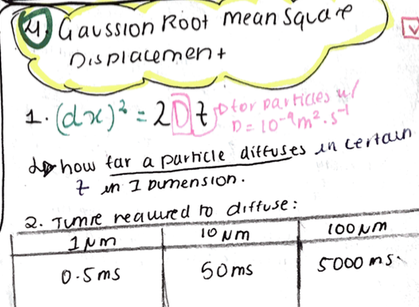 4. Gaussion Root Mean Square
Displacement
1. (dx)² = 2Dt
D for particles w/
D = 10⁻⁹ m². s⁻¹
↳ how far a particle diffuses in certain
t in 1 Dimension.
2. Time required to diffuse:
1 μm 10 μm 100 μm
0.5 ms 50 ms 5000 ms.